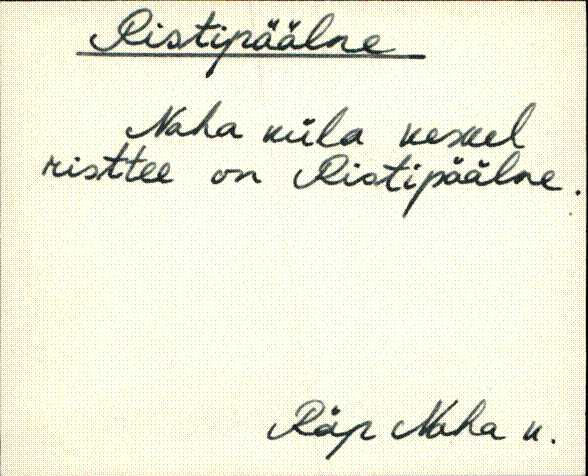 Ristipäälne
Naha küla keskel
risttee on Ristipäälne.
Räp Naha k.